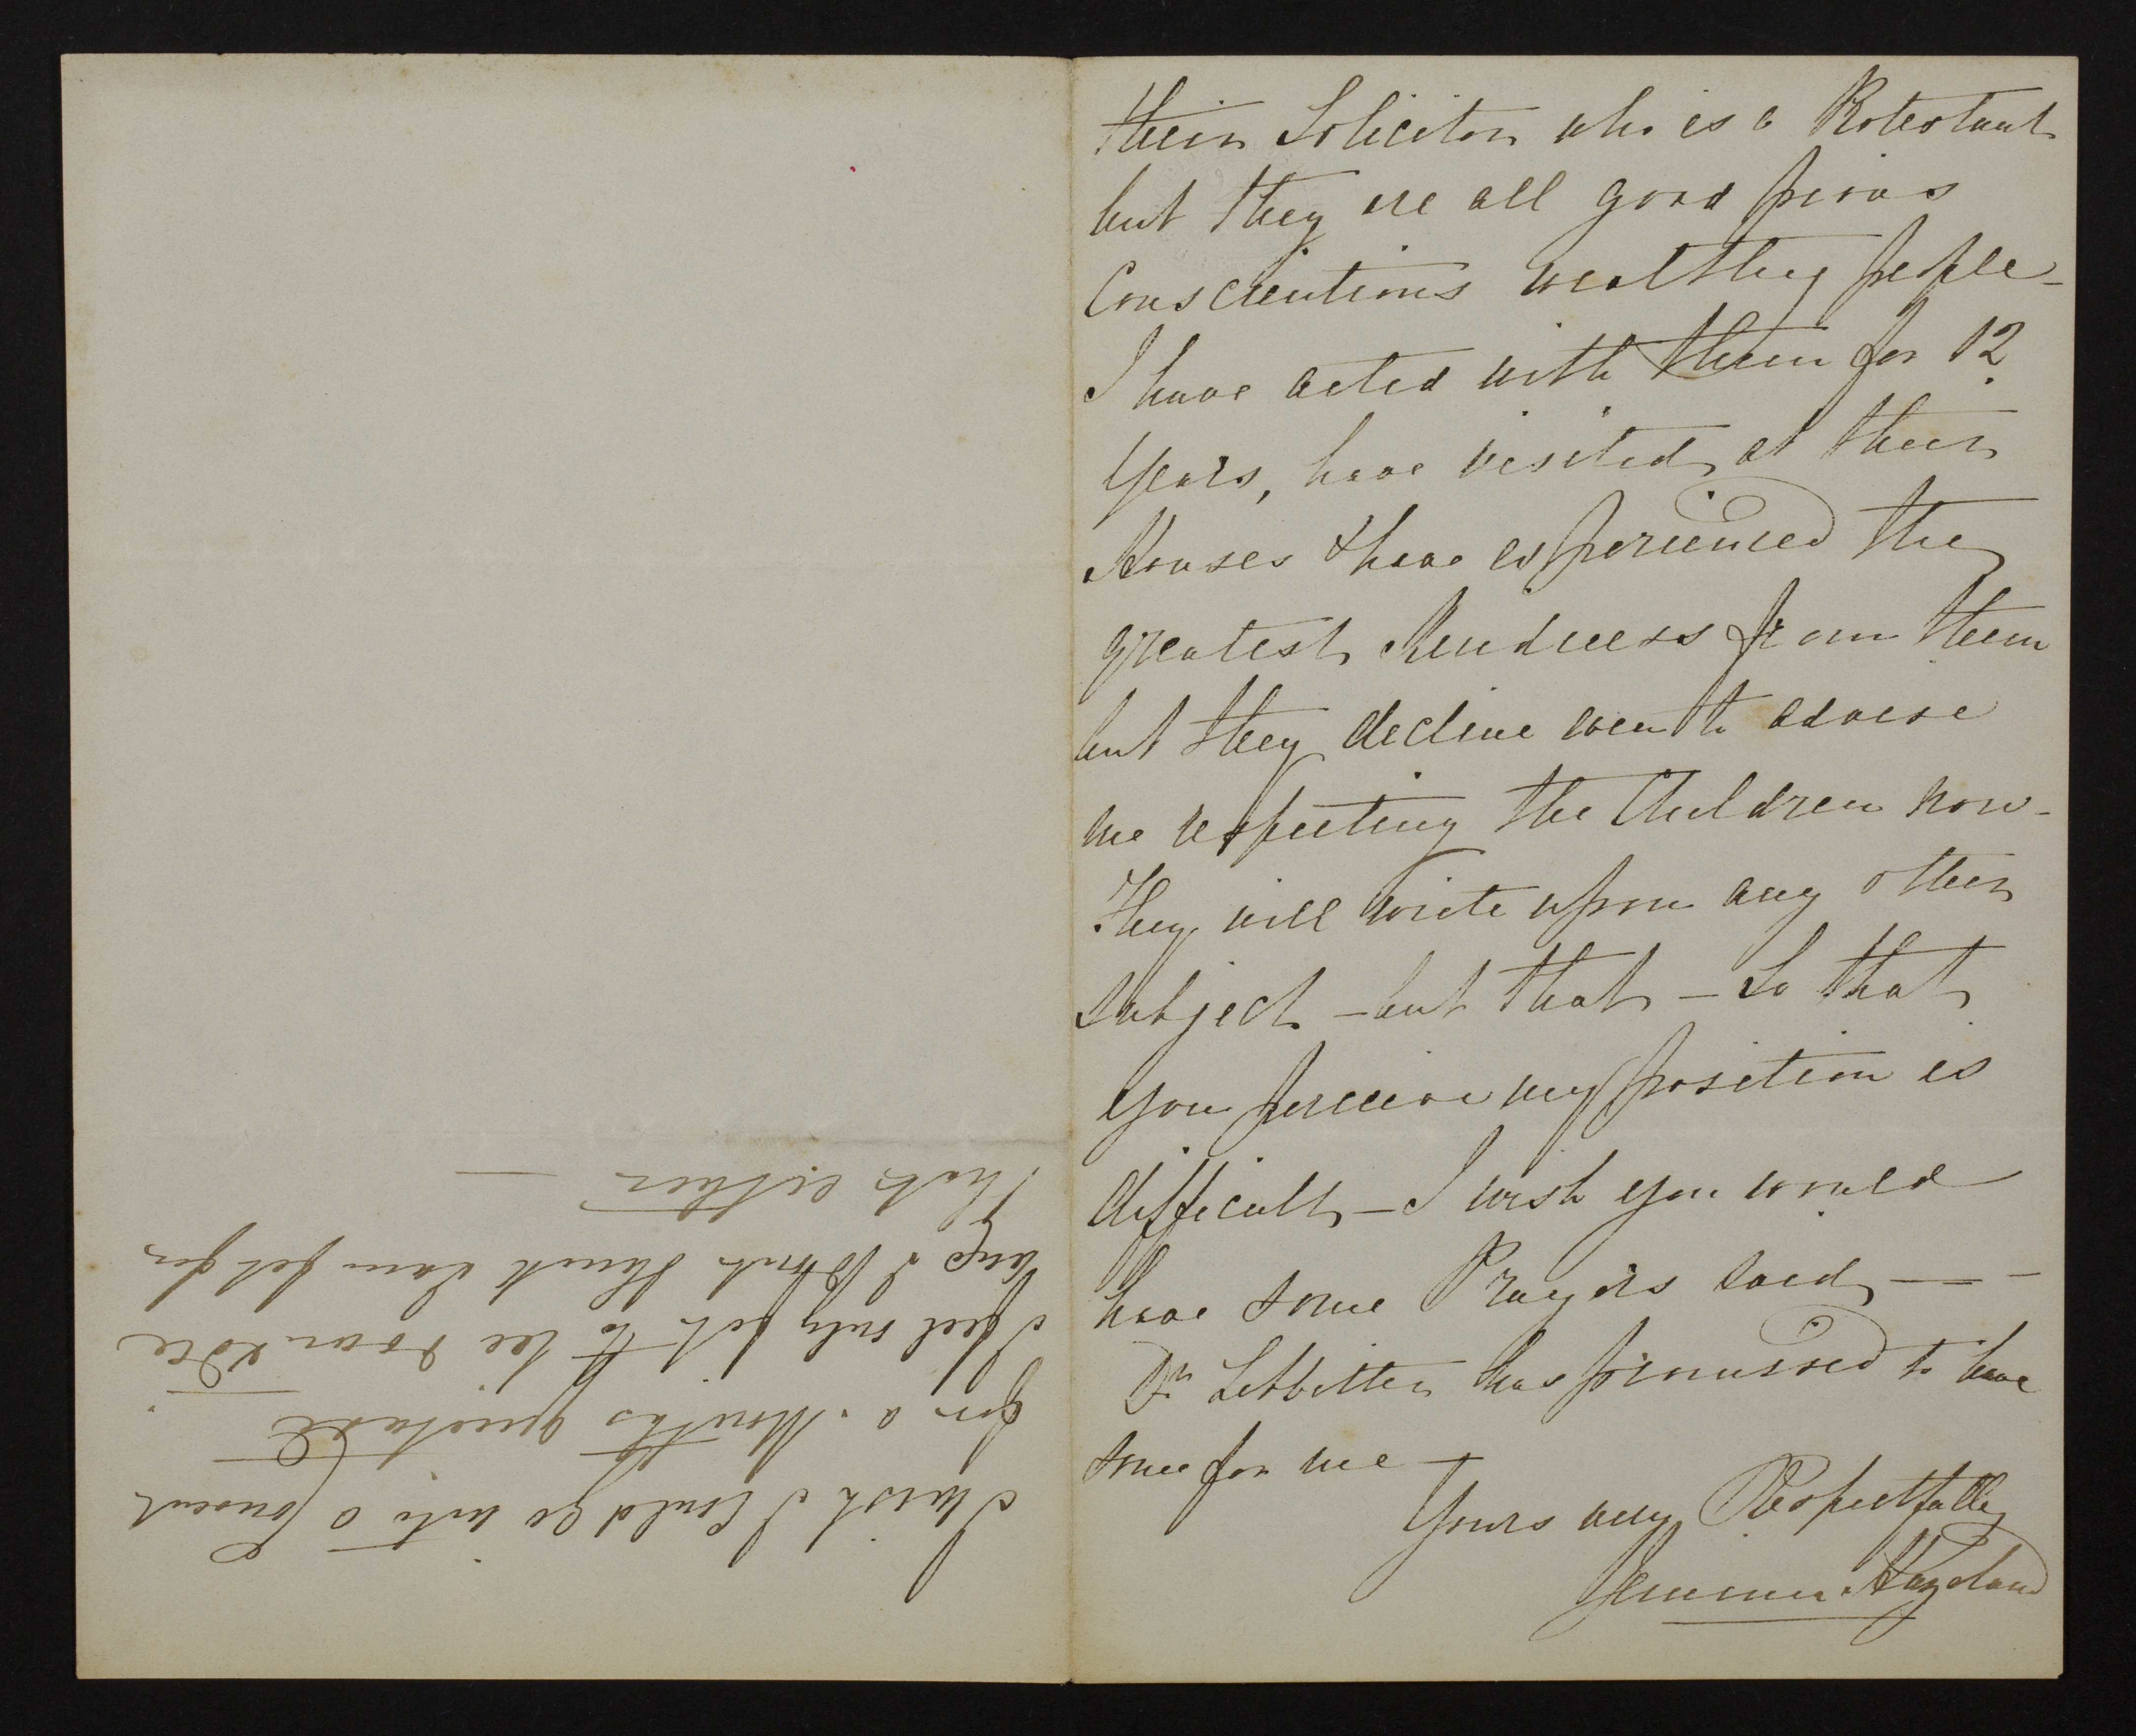 their Solicitor who is a Protestant
but they are all good pious
Conscientious wealthy people –
I have acted with them for 12
Years, have visited at their
Houses & have experienced the
greatest Kindness from them
but they decline even to advise
me respecting the Children now –
They will write upon any other
subject – but that – So that
you perceive my position is
difficult – I wish you would
have some Prayers said — –
Dr Lebbetter has promised to have
some for me –
Yours very Respectfully
Jemima Hazeland
I wish I could go into a Convent
for a Months quietude
I feel only fit to lie down & die
and I don't think I am fit for
that either —